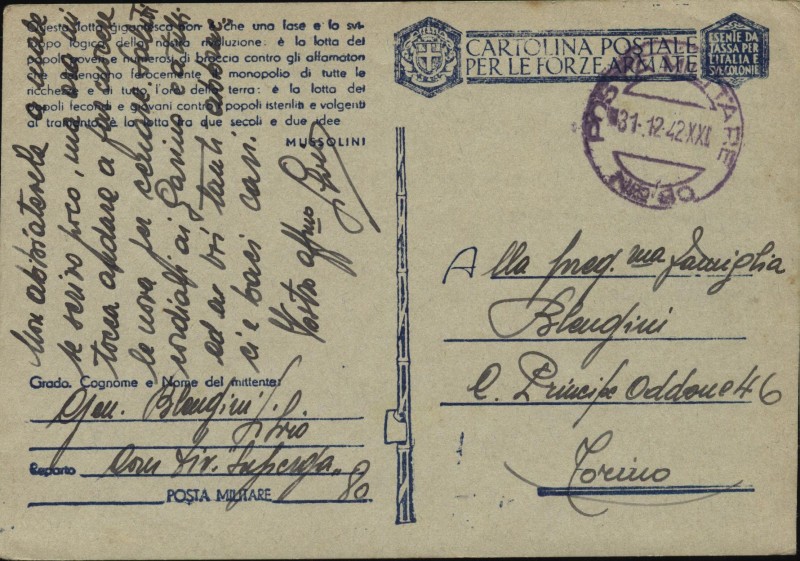 Questa lotta gigantesca non è che una fase e lo svi-
luppo logico della nostra rivoluzione: è la lotta dei
popoli poveri e numerosi di braccia contro gli affamatori
che detengono ferocemente il monopolio di tutte le
ricchezze e di tutto l'oro della terra: è la lotta dei
popoli fecondi e giovani contro i popoli isteriliti e volgenti
al tramonto, è la lotta tra due secoli e due idee
MUSSOLINI
Non abbiatevela a male
se scrivo poco, ma ora mi
tocca andare a
le uova per
cordiali ai
ed a voi tanti
ci e baci cari.
Vostro affmo Silvio
Grado, Cognome e Nome del mittente:
Blengini Silvio
Reparto Com Div. "Superga"
POSTA MILITARE 80
CARTOLINA POSTALE
PER LE FORZE ARMATE
ESENTE DA
TASSA PER
L'ITALIA E
SUE COLONIE
POSTA MILITARE
31.12.42 XXI
Alla preg.ma Famiglia
Blengini
C. Principe Oddone 46
Torino